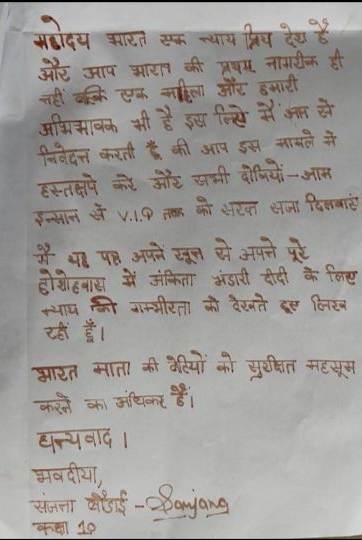 महोदय भारत एक न्याय प्रिय देश है
और आप भारत की प्रथम नागरीक ही
नहीं बल्कि एक महिला और हमारी
अभिभावक भी है इस लिये मैं आप से
निवेदन करती हूँ की आप इस मामले में
हस्तक्षेप करे और सभी दोषियों - आम
इन्सान से V.I.P तक को सख्त सजा दिलवाएं
मैं यह पत्र अपने खून से अपने पूरे
होशोहवास में अंकिता भंडारी दीदी के लिए
न्याय की गम्भीरता को देखते हुए लिख
रही हूँ।
भारत माता की बेटियों को सुरक्षित महसूस
करने का अधिकार है।
धन्यवाद ।
भवदीया,
संजना - Sanjana
कक्षा 10